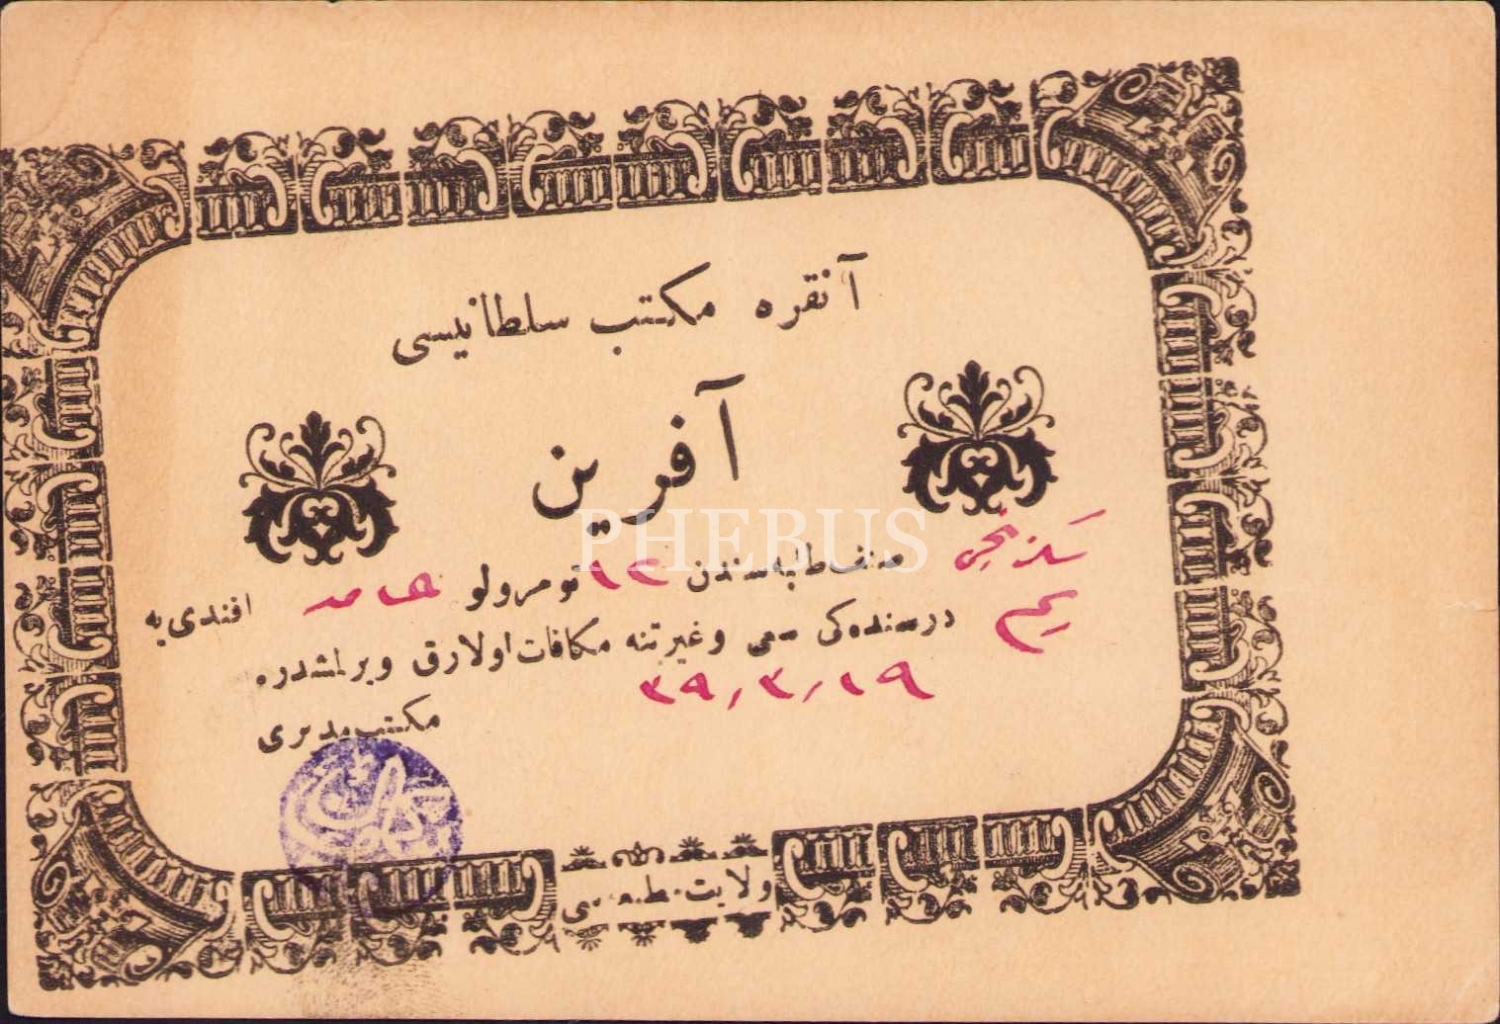 آنقره مكتب سلطانیسی
آفرین
سكزنجی صنف طلبه سندن ١٢ نومرولو حامد افندی یه
درسنده كی سعی و غیرتنه مكافات اولارق ویرلمشدر.
١٩/٣/٣٩
مكتب مدیری
ولایت مطبعه سی
PHEBUS